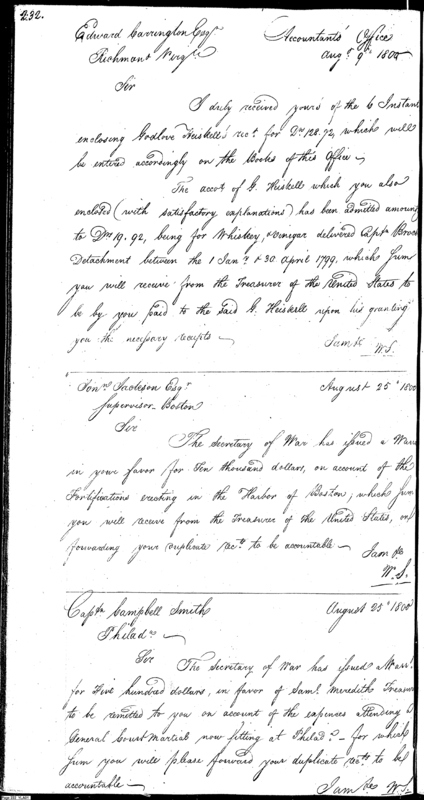 232.
Edward Carrington Esqr
Accountants' Office
Richmond Virga
Augt 9th 1800
Sir
I duly received yours of the 6 Instant
enclosing Godlove Heiskell's rect for Drs 128.72, which will
be entered accordingly on the Books of this Office
The acct of G. Heiskell which you also
enclosed (with satisfactory explanations) has been admitted amoung
to Drs 19.92, being for Whiskey, & Vinegar delivered Capt
Detachment between the 1 Jany & 30 April 1799, which sum
you will receive from the Treasurer of the United States to
be by you paid to the said G. Heiskell upon his granting
you the necessary receipts
I am &c W.S.
Jonn Jackson Esqr
August 25th 1800
Supervisor Boston
Sir
The Secretary of War has issued a Warr
in your favor for Ten thousand dollars, on account of the
Fortifications erecting in the Harbor of Boston, which sum
you will receive from the Treasurer of the United States, on
forwarding your duplicate rects to be accountable
I am &c
W.S.
Captn Campbell Smith
August 25th 1800
Philada
Sir
The Secretary of War has issued a Warrt
for Five hundred dollars, in favor of Saml Meredith Treasurer
to be remitted to you on account of the expences attending a
General Court Martial now sitting at Philada - for which
sum you will please forward your duplicate rects to be
accountable
I am &c W.S.